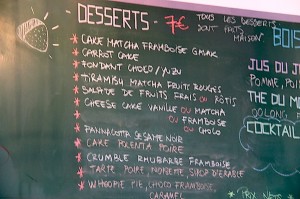 DESSERTS - 7€
TOUS LES DESSERTS
SONT FAITS
MAISON
* CAKE MATCHA FRAMBOISE
* CARROT CAKE
* FONDANT CHOCO / YUZU
* TIRAMISU MATCHA FRUITS ROUGES
* SALADE DE FRUITS FRAIS OU RÔTIS
* CHEESE CAKE VANILLE OU MATCHA
OU FRAMBOISE
OU CHOCO
* PANNACOTTA SESAME NOIR
* CAKE POLENTA POIRE
* CRUMBLE RHUBARBE FRAMBOISE
* TARTE POIRE, NOISETTE, SIROP D'ERABLE
* WHOOPIE PIE, CHOCO FRAMBOISE,
CARAMEL
BOIS
JUS DU J
POMME, POI
THE DU M
OOLONG,
COCKTAIL
PRIX NETS